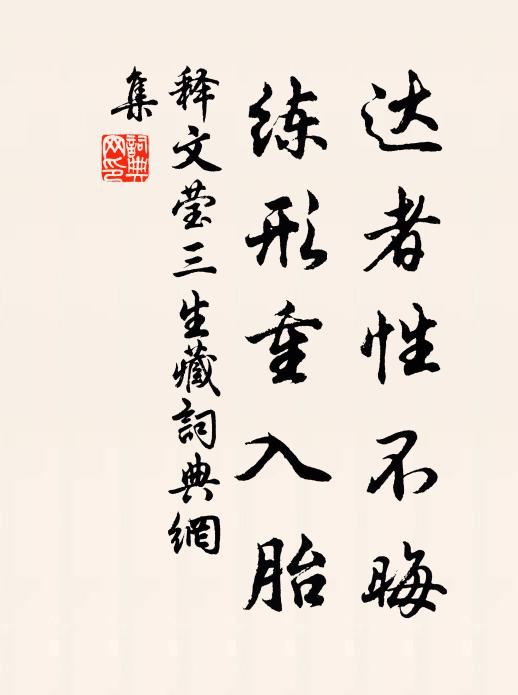 达者性不晦
练形重入胎
释文莹三生藏詞典網
集
詞典网印